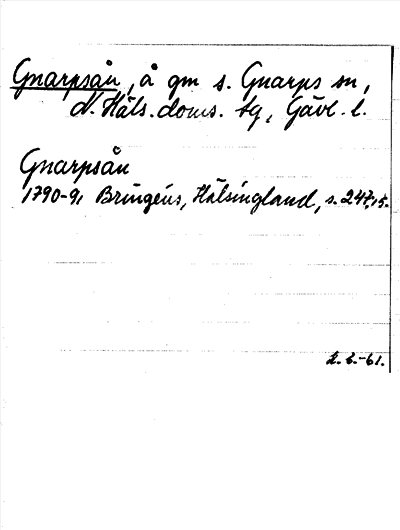 Gnarpsån, å gm s. Gnarps sn,
N. Häls. doms. tg, Gävl. l.
Gnarpsån
1790-91 Bringéus, Hälsingland, s. 247, 15.
2. 2. -61.